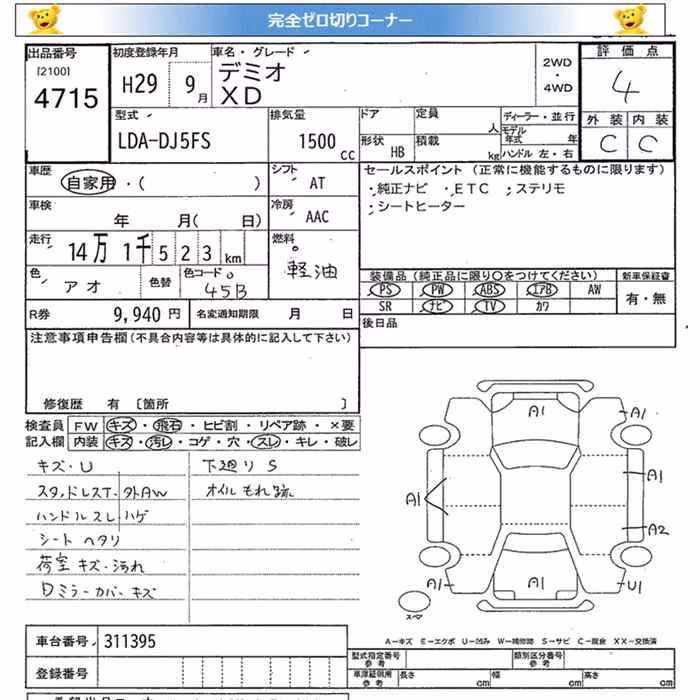 完全ゼロ切りコーナー
出品番号
[2100]
4715
初度登録年月
H29 9月
車名・グレード
デミオ
XD
2WD
・
4WD
評価点
4
外装 内装
C C
型式
LDA-DJ5FS
排気量
1500 cc
ドア
定員
人
形状
HB
積載
kg
ディーラー・並行
モデル年式 年
ハンドル 左・右
車歴
自家用・( )
シフト
AT
セールスポイント (正常に機能するものに限ります)
;純正ナビ ;ETC ;ステリモ
;シートヒーター
車検
年 月( 日)
冷房
AAC
走行
14万 1千 5 2 3 km
燃料
軽油
色
アオ
色替
色コード
45B
装備品 (純正品に限り○をつけてください)
新車保証書
PS PW ABS エアB AW
有・無
SR ナビ TV カワ
R券
9,940 円
名変通知期限 月 日
後日品
注意事項申告欄(不具合内容等は具体的に記入して下さい)
修復歴 有 〔箇所 〕
検査員記入欄
FW キズ・飛石・ヒビ割・リペア跡・×要
内装 キズ・汚れ・コゲ・穴・スレ・キレ・破レ
キズ・U
スタッドレスT・外AW
ハンドルスレ・ハゲ
シート ヘタリ
荷室 キズ・汚れ
Dミラーカバーキズ
下廻り S
オイルもれ跡
A1
A1
A1
A1
A2
A1
A1
U1
スペア
A-キズ E-エクボ U-凹み W-補修跡 S-サビ C-腐食 XX-交換済
車台番号
311395
登録番号
型式指定番号
参考
類別区分番号
参考
車庫証明用
参考
長さ cm
幅 cm
高さ cm